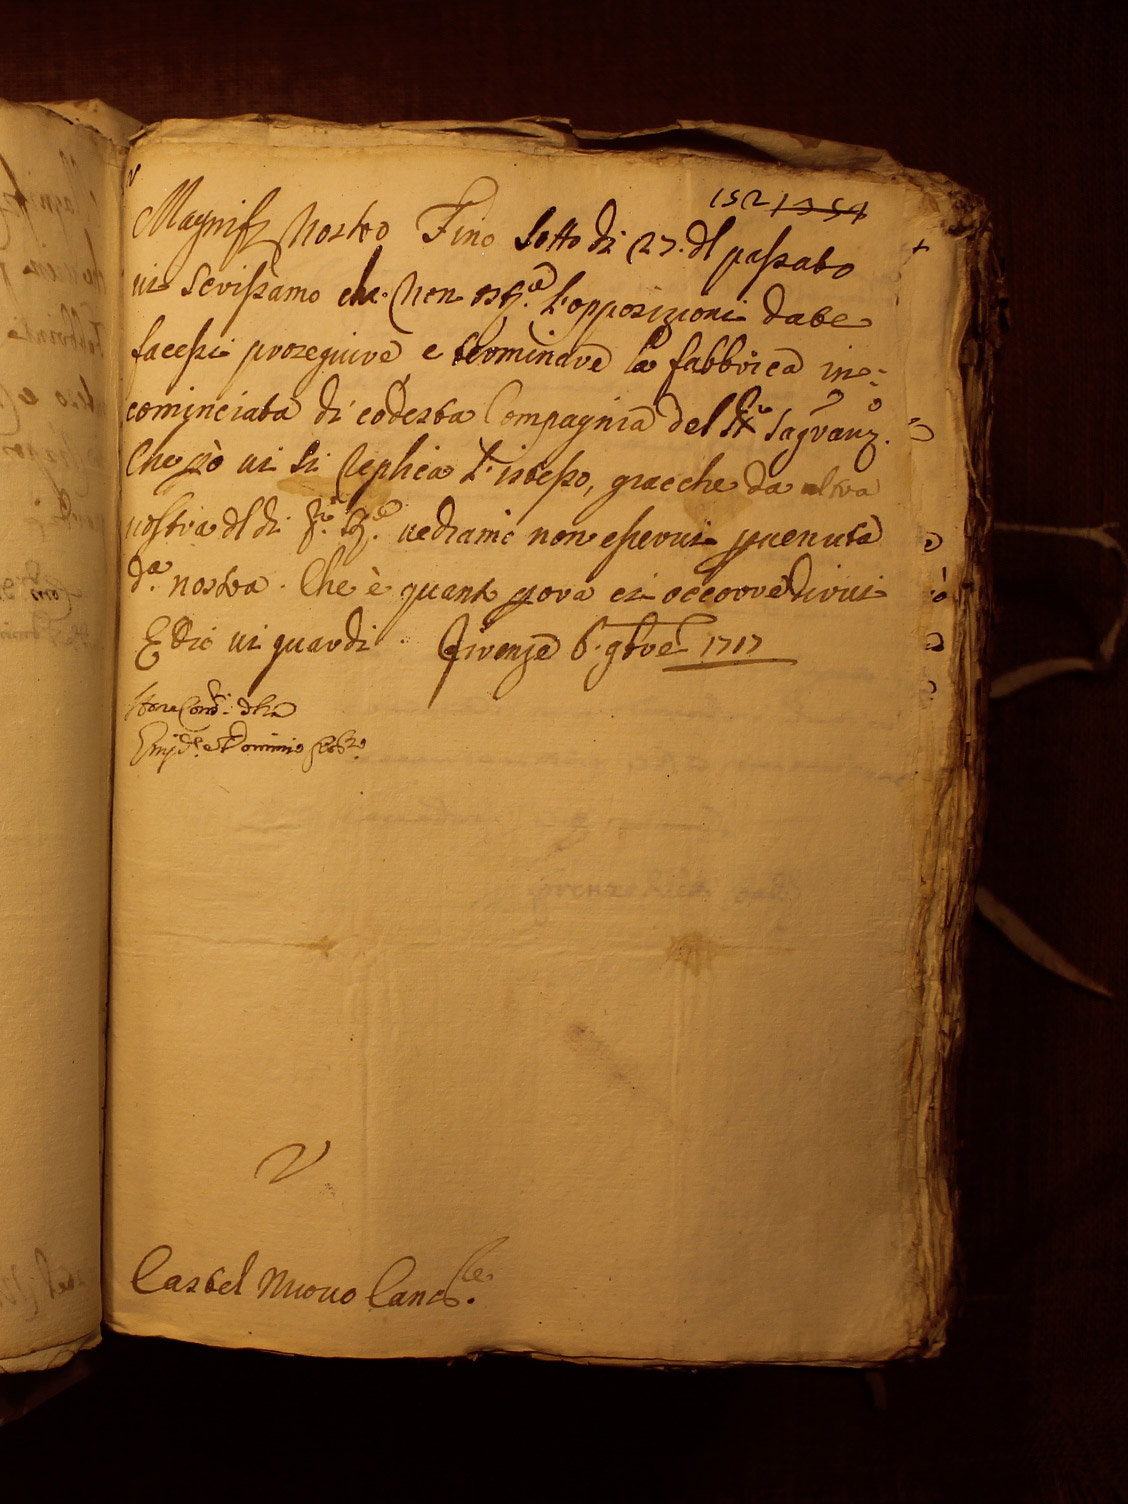 152 1354
Magnif. Nostro Fino sotto di 27. dl passato
vi scrissamo che non ost.e l'opposizioni date
facessi proseguire e terminare la fabbrica in:
cominciata di codesta Compagnia del SS.o Sagram.o
Che però vi si replica l'istesso, giacche da altra
vostra dl di p.o vediamo non esservi pvenuta
d.a nostra. Che è quanto p ora ci occorre dirvi
E Dio vi guardi. Firenze 6. 9bre 1717
e Dominio
Castel Nuovo Canc.re